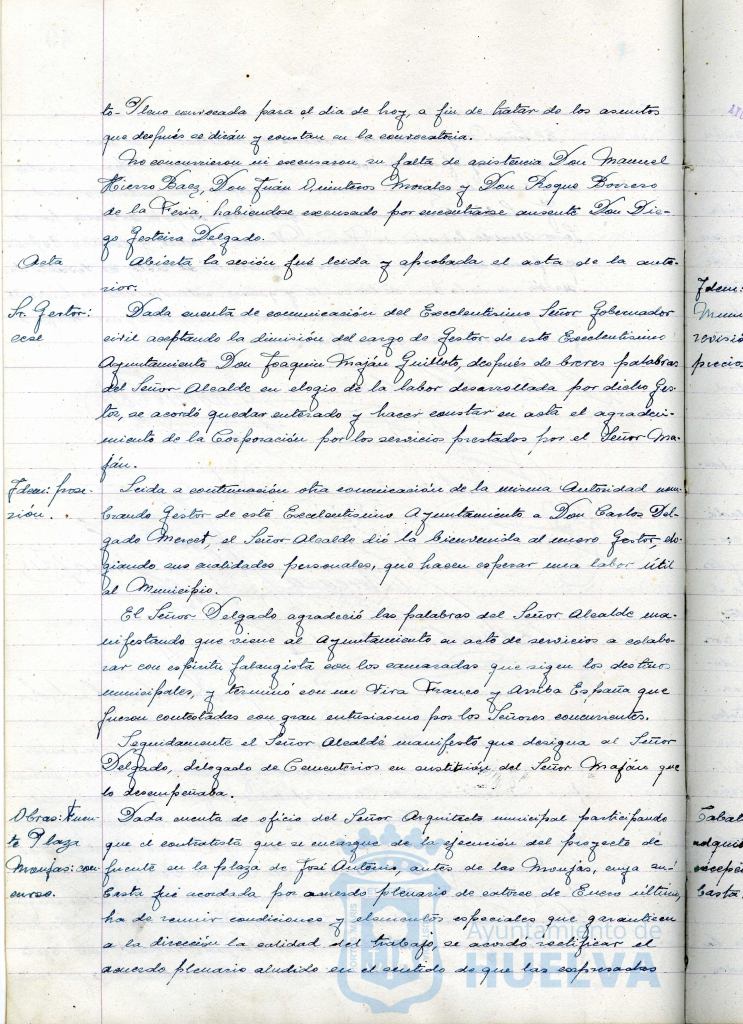 to-Pleno convocada para el dia de hoy, a fin de tratar de los asuntos
que después se dirán y constan en la convocatoria.
No concurrieron ni excusaron su falta de asistencia Don Manuel
Hierro Baez, Don Juán Quinteros Morales y Don Roque Borrero
de la Feria, habiendose excusado por encontrarse ausente Don Die-
go Gesteira Delgado.
Acta
Abierta la sesión fué leida y aprobada el acta de la ante-
rior.
Sr. Gestor:
cese
Dada cuenta de comunicación del Excelentisimo Señor Gobernador
civil aceptando la dimisión del cargo de Gestor de este Excelentisimo
Ayuntamiento Don Joaquin Maján Guilloto, después de breves palabras
del Señor Alcalde en elogio de la labor desarrollada por dicho Ges-
tor, se acordó quedar enterado y hacer constar en acta el agradeci-
miento de la Corporación por los servicios prestados por el Señor Ma-
ján.
Idem: pose-
sión.
Leida a continuación otra comunicación de la misma Autoridad nom-
brando Gestor de este Excelentisimo Ayuntamiento a Don Carlos Del-
gado Mercet, el Señor Alcalde dió la bienvenida al nuevo Gestor, elo-
giando sus cualidades personales, que hacen esperar una labor útil
al Municipio.
El Señor Delgado agradeció las palabras del Señor Alcalde ma-
nifestando que viene al Ayuntamiento en acto de servicios a colabo-
rar con espiritu falangista con los camaradas que rigen los destinos
municipales, y terminó con un Viva Franco y Arriba España que
fueron contestadas con gran entusiasmo por los Señores concurrentes.
Seguidamente el Señor Alcalde manifestó que designa al Señor
Delgado, delegado de Cementerios en sustitución del Señor Maján que
lo desempeñaba.
Obras: Fuen-
te Plaza
Monjas: con-
curso.
Dada cuenta de oficio del Señor Arquitecto municipal participando
que el contratista que se encargue de la ejecución del proyecto de
fuente en la plaza de José Antonio, antes de las Monjas, cuya su-
basta fué acordada por acuerdo plenario de catorce de Enero último,
ha de reunir condiciones y elementos especiales que garanticen
a la dirección la calidad del trabajo, se acordó rectificar el
acuerdo plenario aludido en el sentido de que las expresadas
Idem:
revisió
precio
adquis
Ayuntamiento de
HUELVA